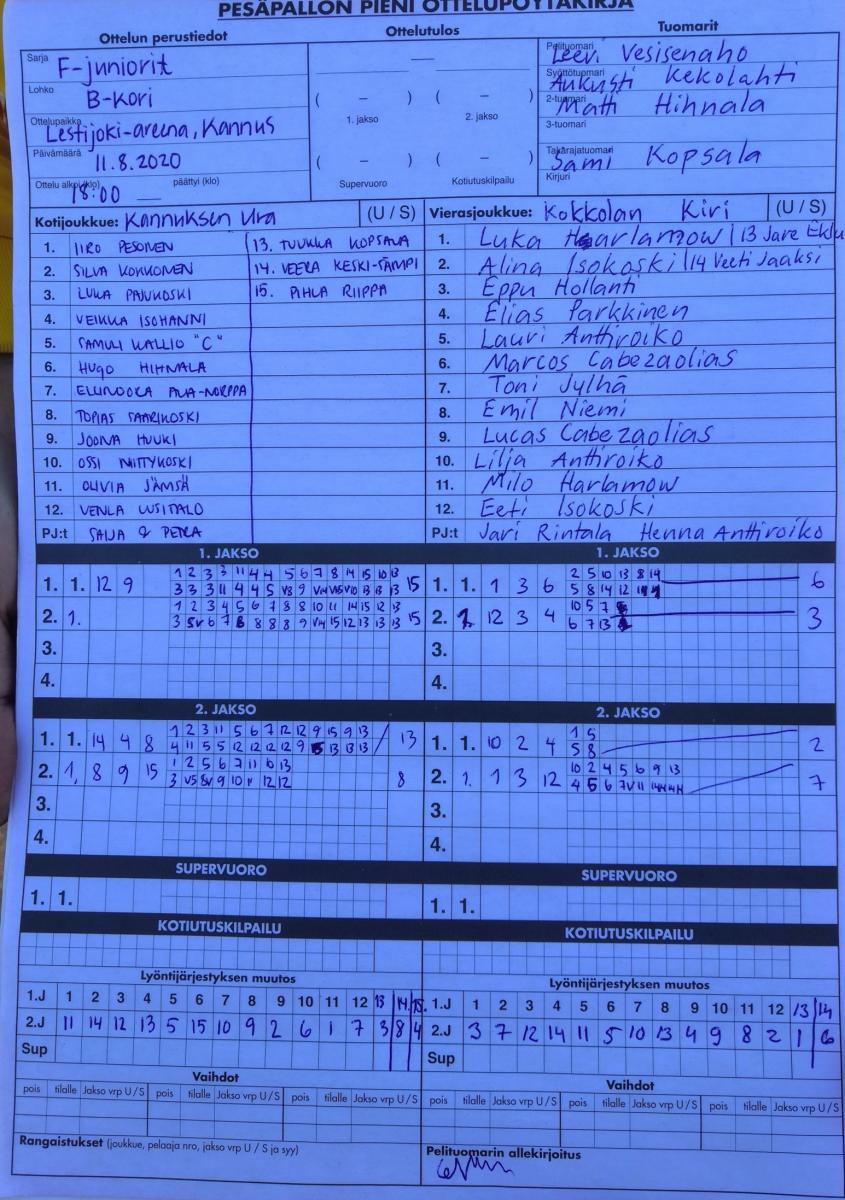 PESÄPALLON PIENI OTTELUPÖYTÄKIRJA
Ottelun perustiedot
Ottelutulos
Tuomarit
Sarja F-juniorit
Lohko B-Kori
Ottelupaikka Lestijoki-areena, Kannus
Päivämäärä 11.8.2020
Ottelu alkoi (klo) 18:00 päättyi (klo)
( – ) ( – )
1. jakso 2. jakso
( – ) ( – )
Supervuoro Kotiutuskilpailu
Pelituomari Leevi Vesisenaho
Syöttötuomari Aukusti Kekolahti
2-tuomari Matti Hihnala
3-tuomari
Takarajatuomari Sami Kopsala
Kirjuri
Kotijoukkue: Kannuksen Ura (U / S)
1. IIRO PESONEN 13. TUUKKA KOPSALA
2. SILVA KOKKONEN 14. VEERA KESKI-SÄMPI
3. LUKA PAJUKOSKI 15. PIHLA RIIPPA
4. VEIKKA ISOHANNI
5. SAMULI KALLIO "C"
6. HUGO HIHNALA
7. ALA-NORPPA
8. TOPIAS SAARIKOSKI
9. JOONA HUUKI
10. OSSI NIITTYKOSKI
11. OLIVIA JÄMSÄ
12. VENLA UUSITALO
PJ:t SAIJA & PETRA
Vierasjoukkue: Kokkolan Kiri (U / S)
1. Luka Haarlamow | 13 Jare
2. Alina Isokoski | 14 Veeti Jaaksi
3. Eppu Hollanti
4. Elias Parkkinen
5. Lauri Anttiroiko
6. Marcos Cabezaolias
7. Toni Jylhä
8. Emil Niemi
9. Lucas Cabezaolias
10. Lilja Anttiroiko
11. Milo Harlamow
12. Eeti Isokoski
PJ:t Jari Rintala Henna Anttiroiko
1. JAKSO
1. 1. 12 9 1 2 3 3 11 4 4 5 6 7 8 14 15 10 13
3 3 3 11 4 4 5 V8 9 13 13 13 15
2. 1. 1 2 3 4 5 6 7 8 8 10 11 14 15 12 13
3 5V 6 7 8 8 8 8 9 V14 15 12 13 13 13 15
3.
4.
1. JAKSO
1. 1. 1 3 6 2 5 10 13 8 14
5 8 14 12 6
2. 12 3 4 10 5 7
6 7 13 3
3.
4.
2. JAKSO
1. 1. 14 4 8 1 2 3 11 5 6 7 12 12 9 15 9 13
4 11 5 5 12 12 12 12 9 13 13 13 13
2. 1, 8 9 15 1 2 5 6 7 11 10 13
3 V5 8V 9 10 11 12 12 8
3.
4.
2. JAKSO
1. 1. 10 2 4 1 5
5 8 2
2. 1. 1 3 12 10 2 4 5 6 9 13
4 5 6 7V 11 7
3.
4.
SUPERVUORO
1. 1.
SUPERVUORO
1. 1.
KOTIUTUSKILPAILU
KOTIUTUSKILPAILU
Lyöntijärjestyksen muutos
1.J 1 2 3 4 5 6 7 8 9 10 11 12 13 14 15.
2.J 11 14 12 13 5 15 10 9 2 6 1 7 3 8 4
Sup
Lyöntijärjestyksen muutos
1.J 1 2 3 4 5 6 7 8 9 10 11 12 13 14
2.J 3 7 12 14 11 5 10 13 4 9 8 2 1 6
Sup
Vaihdot
pois tilalle Jakso vrp U / S pois tilalle Jakso vrp U / S pois tilalle Jakso vrp U / S
Vaihdot
pois tilalle Jakso vrp U / S pois tilalle Jakso vrp U / S pois tilalle Jakso vrp U / S
Rangaistukset (joukkue, pelaaja nro, jakso vrp U / S ja syy)
Pelituomarin allekirjoitus